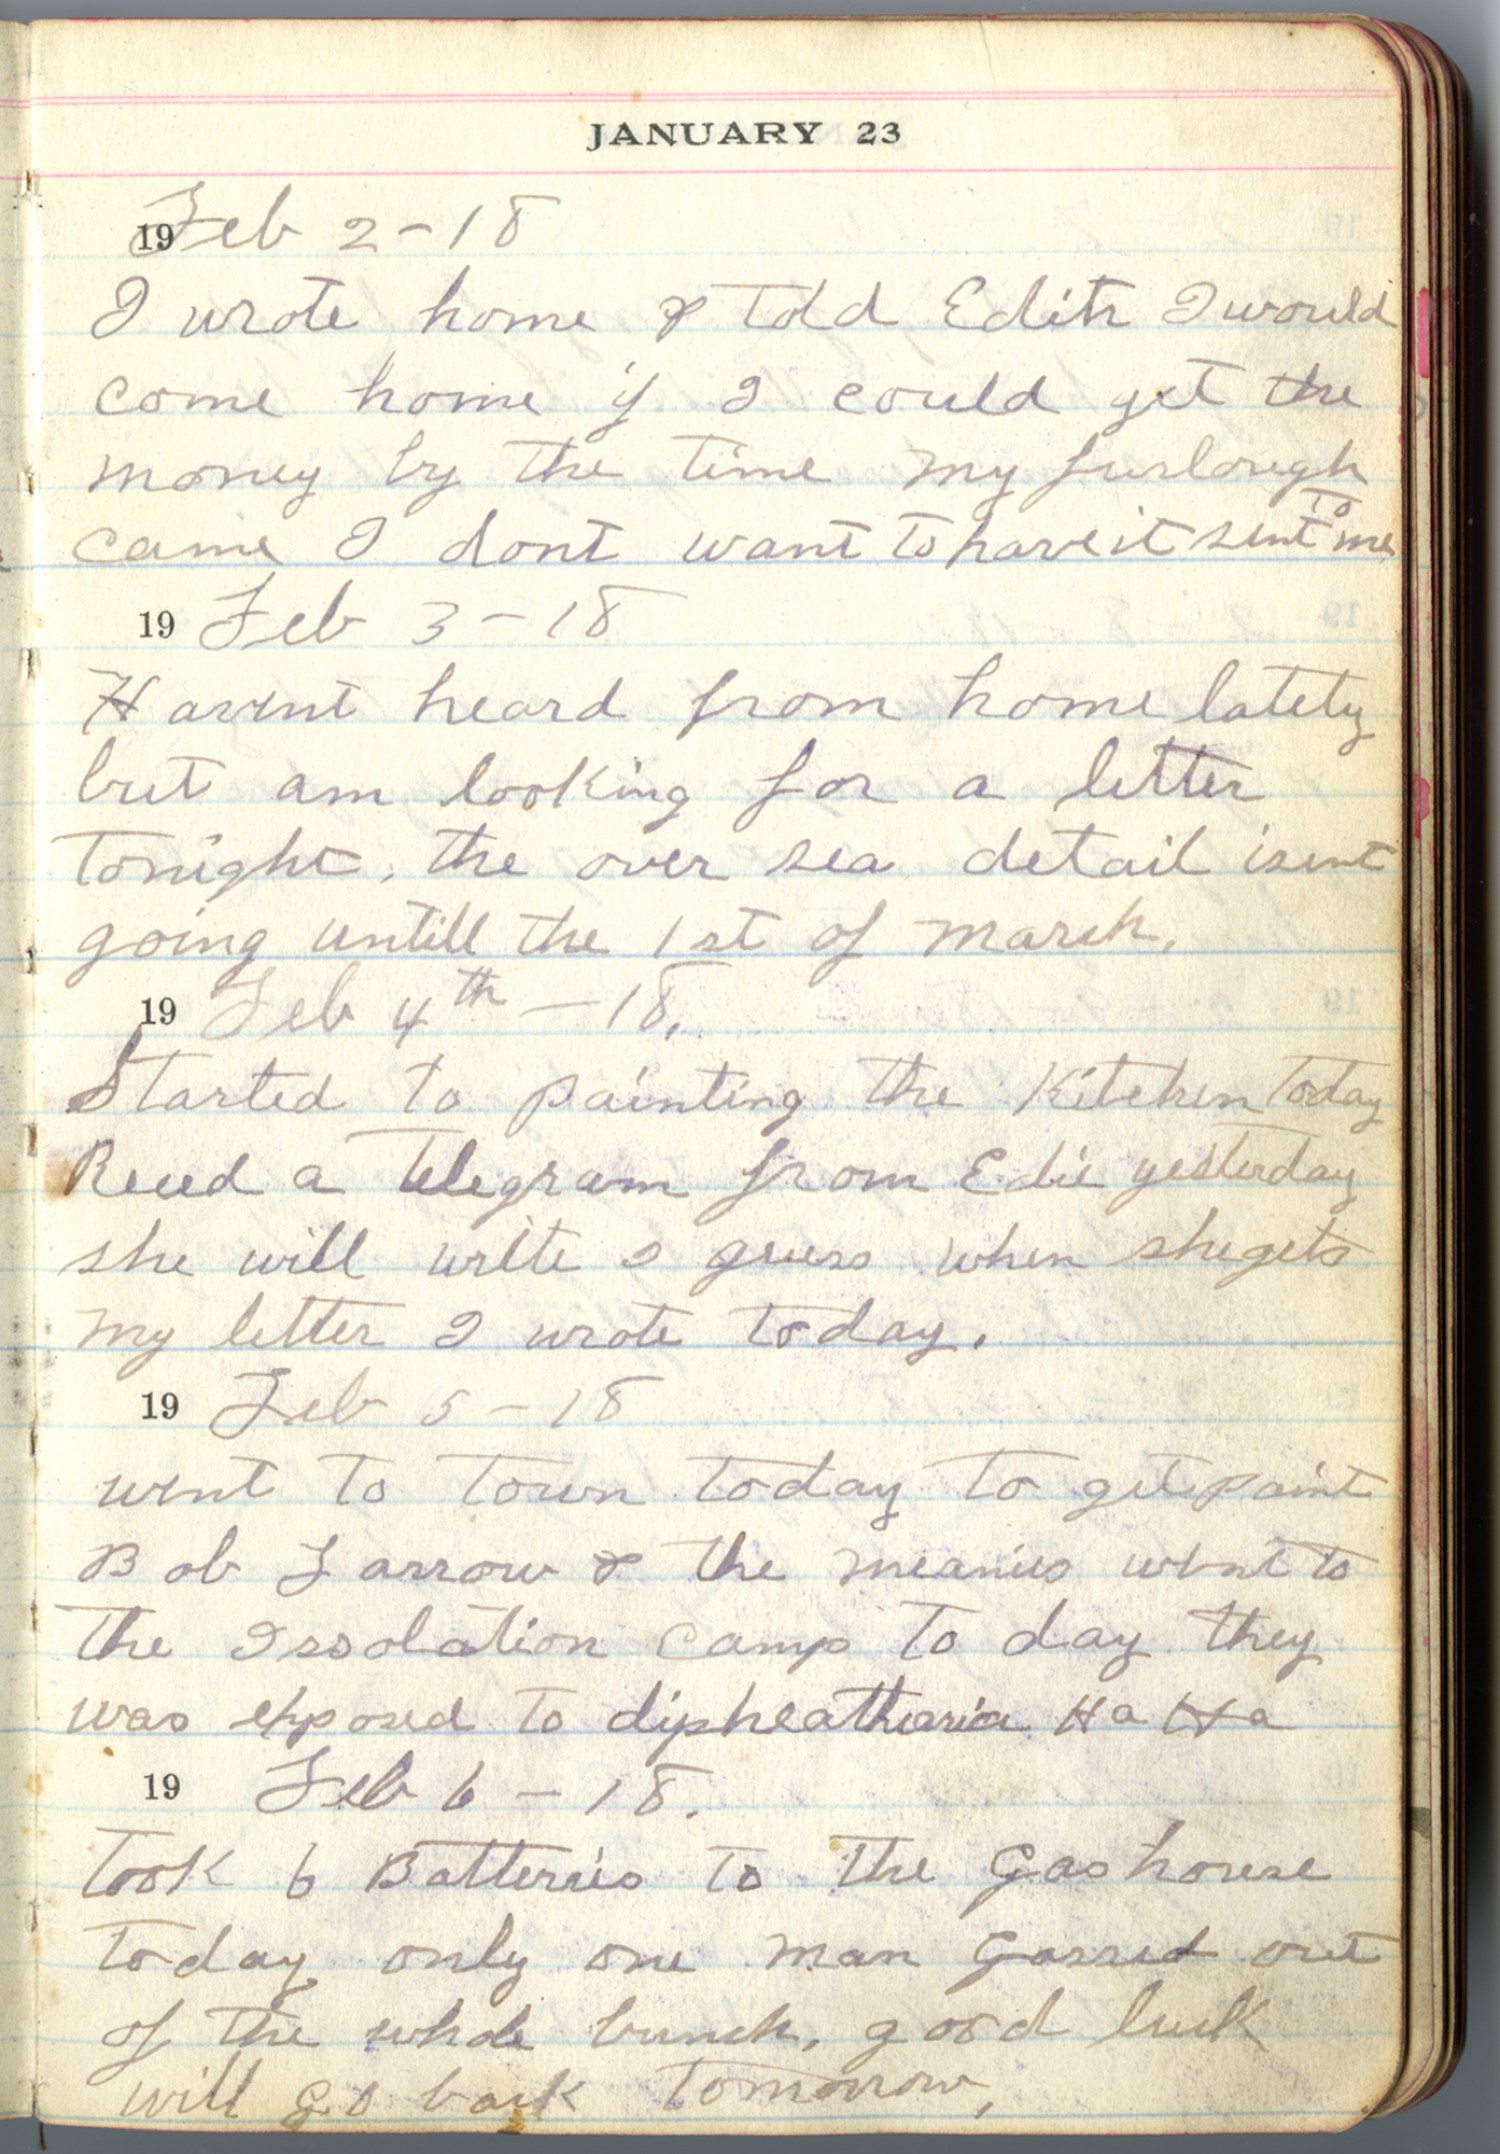 JANUARY 23
19 Feb 2-18
I wrote home & told Edith I would
come home if I could get the
money by the time my furlough
came I dont want to have it sent to me
19 Feb 3-18
Havent heard from home lately
but am looking for a letter
tonight, the over sea detail isent
going untill the 1st of march.
19 Feb 4th -18.
Started to painting the Kitchen today
Recd a telegram from Edie yesterday
she will write I guess when she gets
my letter I wrote today.
19 Feb 5-18
went to town today to get paint
Bob Farrow & the went to
the Issolation camp to day they
was exposed to dipheatheria Ha Ha
19 Feb 6-18.
took 6 Batteries to the Gas house
today only one man Gassed out
of the whole bunch, good luck
will go back tomorrow,